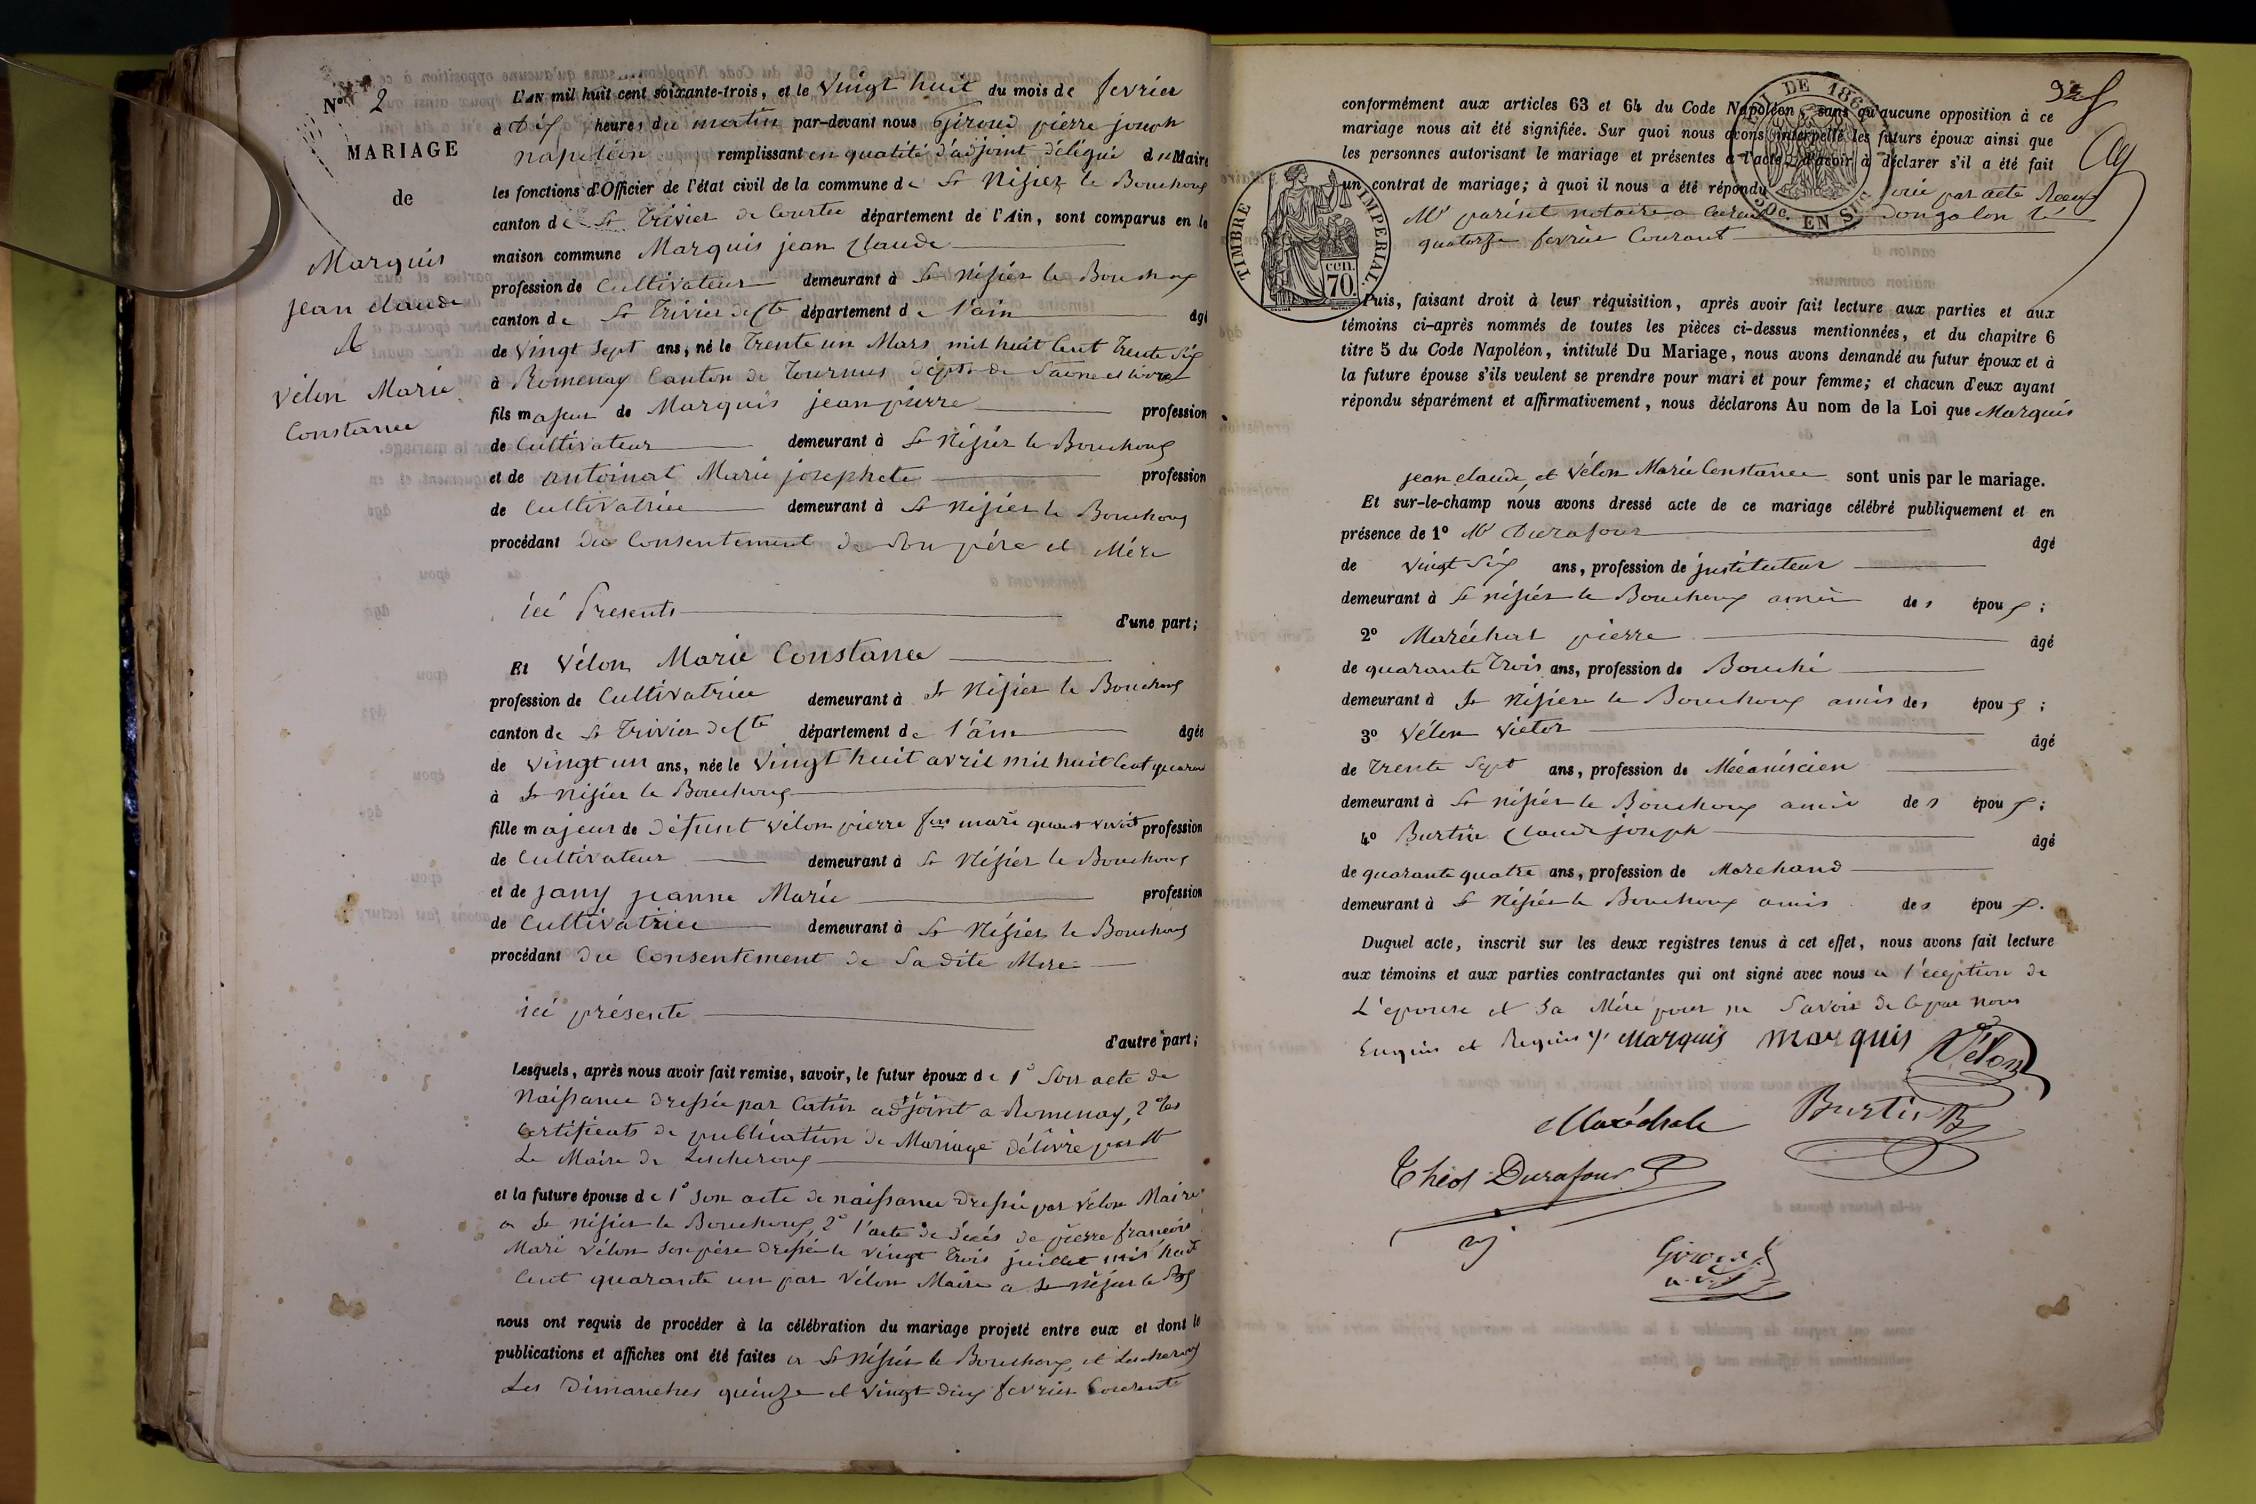 N° 2
MARIAGE
de
Marquis
jean claude
&
Vélon Marie
Constance
L'AN mil huit cent soixante-trois, et le Vingt huit du mois de fevrier
à dix heures du matin par-devant nous Giroud pierre joseph
napoléon remplissant en qualité d'adjoint délégué du Maire
les fonctions d'Officier de l'état civil de la commune de St Nizier le Bouchoux
canton de St Trivier de Courtes département de l'Ain, sont comparus en la
maison commune Marquis jean Claude
profession de Cultivateur demeurant à St Nizier le Bouchoux
canton de St Trivier de Cte département de l'ain âgé
de Vingt Sept ans, né le Trente un Mars mil huit Cent Trente Six
à Romenay Canton de Tournus dépt de Saone et Loire
fils majeur de Marquis jean pierre profession
de Cultivateur demeurant à St Nizier le Bouchoux
et de antoinat Marie josephete profession
de Cultivatrice demeurant à St Nizier le Bouchoux
procédant du Consentement de Son père et Mére
ici Presents
d'une part;
Et Vélon Marie Constance
profession de Cultivatrice demeurant à St Nizier le Bouchoux
canton de St Trivier de Cte département de l'ain âgée
de Vingt un ans, née le Vingt huit avril mil huit Cent quarante
à St Nizier le Bouchoux
fille majeur de Défunt Vélon pierre fois mari quant vivoit profession
de Cultivateur demeurant à St Nizier le Bouchoux
et de jany jeanne Marie profession
de Cultivatrice demeurant à St Nizier le Bouchoux
procédant du Consentement de Sa dite Mere
ici présente
d'autre part;
Lesquels, après nous avoir fait remise, savoir, le futur époux de 1° Son acte de
Naissance dressée par Catin adjoint a Romenay, 2° les
Certificats de publication de Mariage délivré par Mr
Le Maire de Lescheroux
et la future épouse de 1° son acte de naissance dressé par Vélon Maire
a St Nizier le Bouchoux, 2° l'acte de décés de pierre françois
Mari Vélon son père dressé le vingt trois juillet mil huit
Cent quarante un par Vélon Maire a St Nizier le Bx
nous ont requis de procéder à la célébration du mariage projeté entre eux et dont les
publications et affiches ont été faites a St Nizier le Bouchoux, et Lescheroux
Les Dimanches quinze et Vingt deux fevrier Courente
conformément aux articles 63 et 64 du Code Napoléon, sans qu'aucune opposition à ce
mariage nous ait été signifiée. Sur quoi nous avons interpellé les futurs époux ainsi que
les personnes autorisant le mariage et présentes à l'acte, d'avoir à déclarer s'il a été fait
un contrat de mariage; à quoi il nous a été répondu oui par acte Recu
Mr parisel notaire a le
quatorze fevrier Courant
TIMBRE IMPERIAL
70. cen.
LOI DE 186
50c. EN SUS
Puis, faisant droit à leur réquisition, après avoir fait lecture aux parties et aux
témoins ci-après nommés de toutes les pièces ci-dessus mentionnées, et du chapitre 6
titre 5 du Code Napoléon, intitulé Du Mariage, nous avons demandé au futur époux et à
la future épouse s'ils veulent se prendre pour mari et pour femme; et chacun d'eux ayant
répondu séparément et affirmativement, nous déclarons Au nom de la Loi que Marquis
jean claude, et Vélon Marie Constance sont unis par le mariage.
Et sur-le-champ nous avons dressé acte de ce mariage célébré publiquement et en
présence de 1° Mr Durafour âgé
de Vingt Six ans, profession de instituteur
demeurant à St nizier le Bouchoux amis des époux;
2° Maréchal pierre âgé
de quarante Trois ans, profession de Bouché
demeurant à St Nizier le Bouchoux amis des époux;
3° Vélon Victor âgé
de Trente Sept ans, profession de Mécanicien
demeurant à St nizier le Bouchoux amis des époux;
4° Burtin Claude joseph âgé
de quarante quatre ans, profession de Marchand
demeurant à St Nizier le Bouchoux amis des époux.
Duquel acte, inscrit sur les deux registres tenus à cet effet, nous avons fait lecture
aux témoins et aux parties contractantes qui ont signé avec nous a l'éception de
L'epouse et Sa Mére pour ne Savoir de ce par nous
Enquis et Requis Marquis marquis Vélon
Maréchale Burtin
Théod Durafour
Giroud